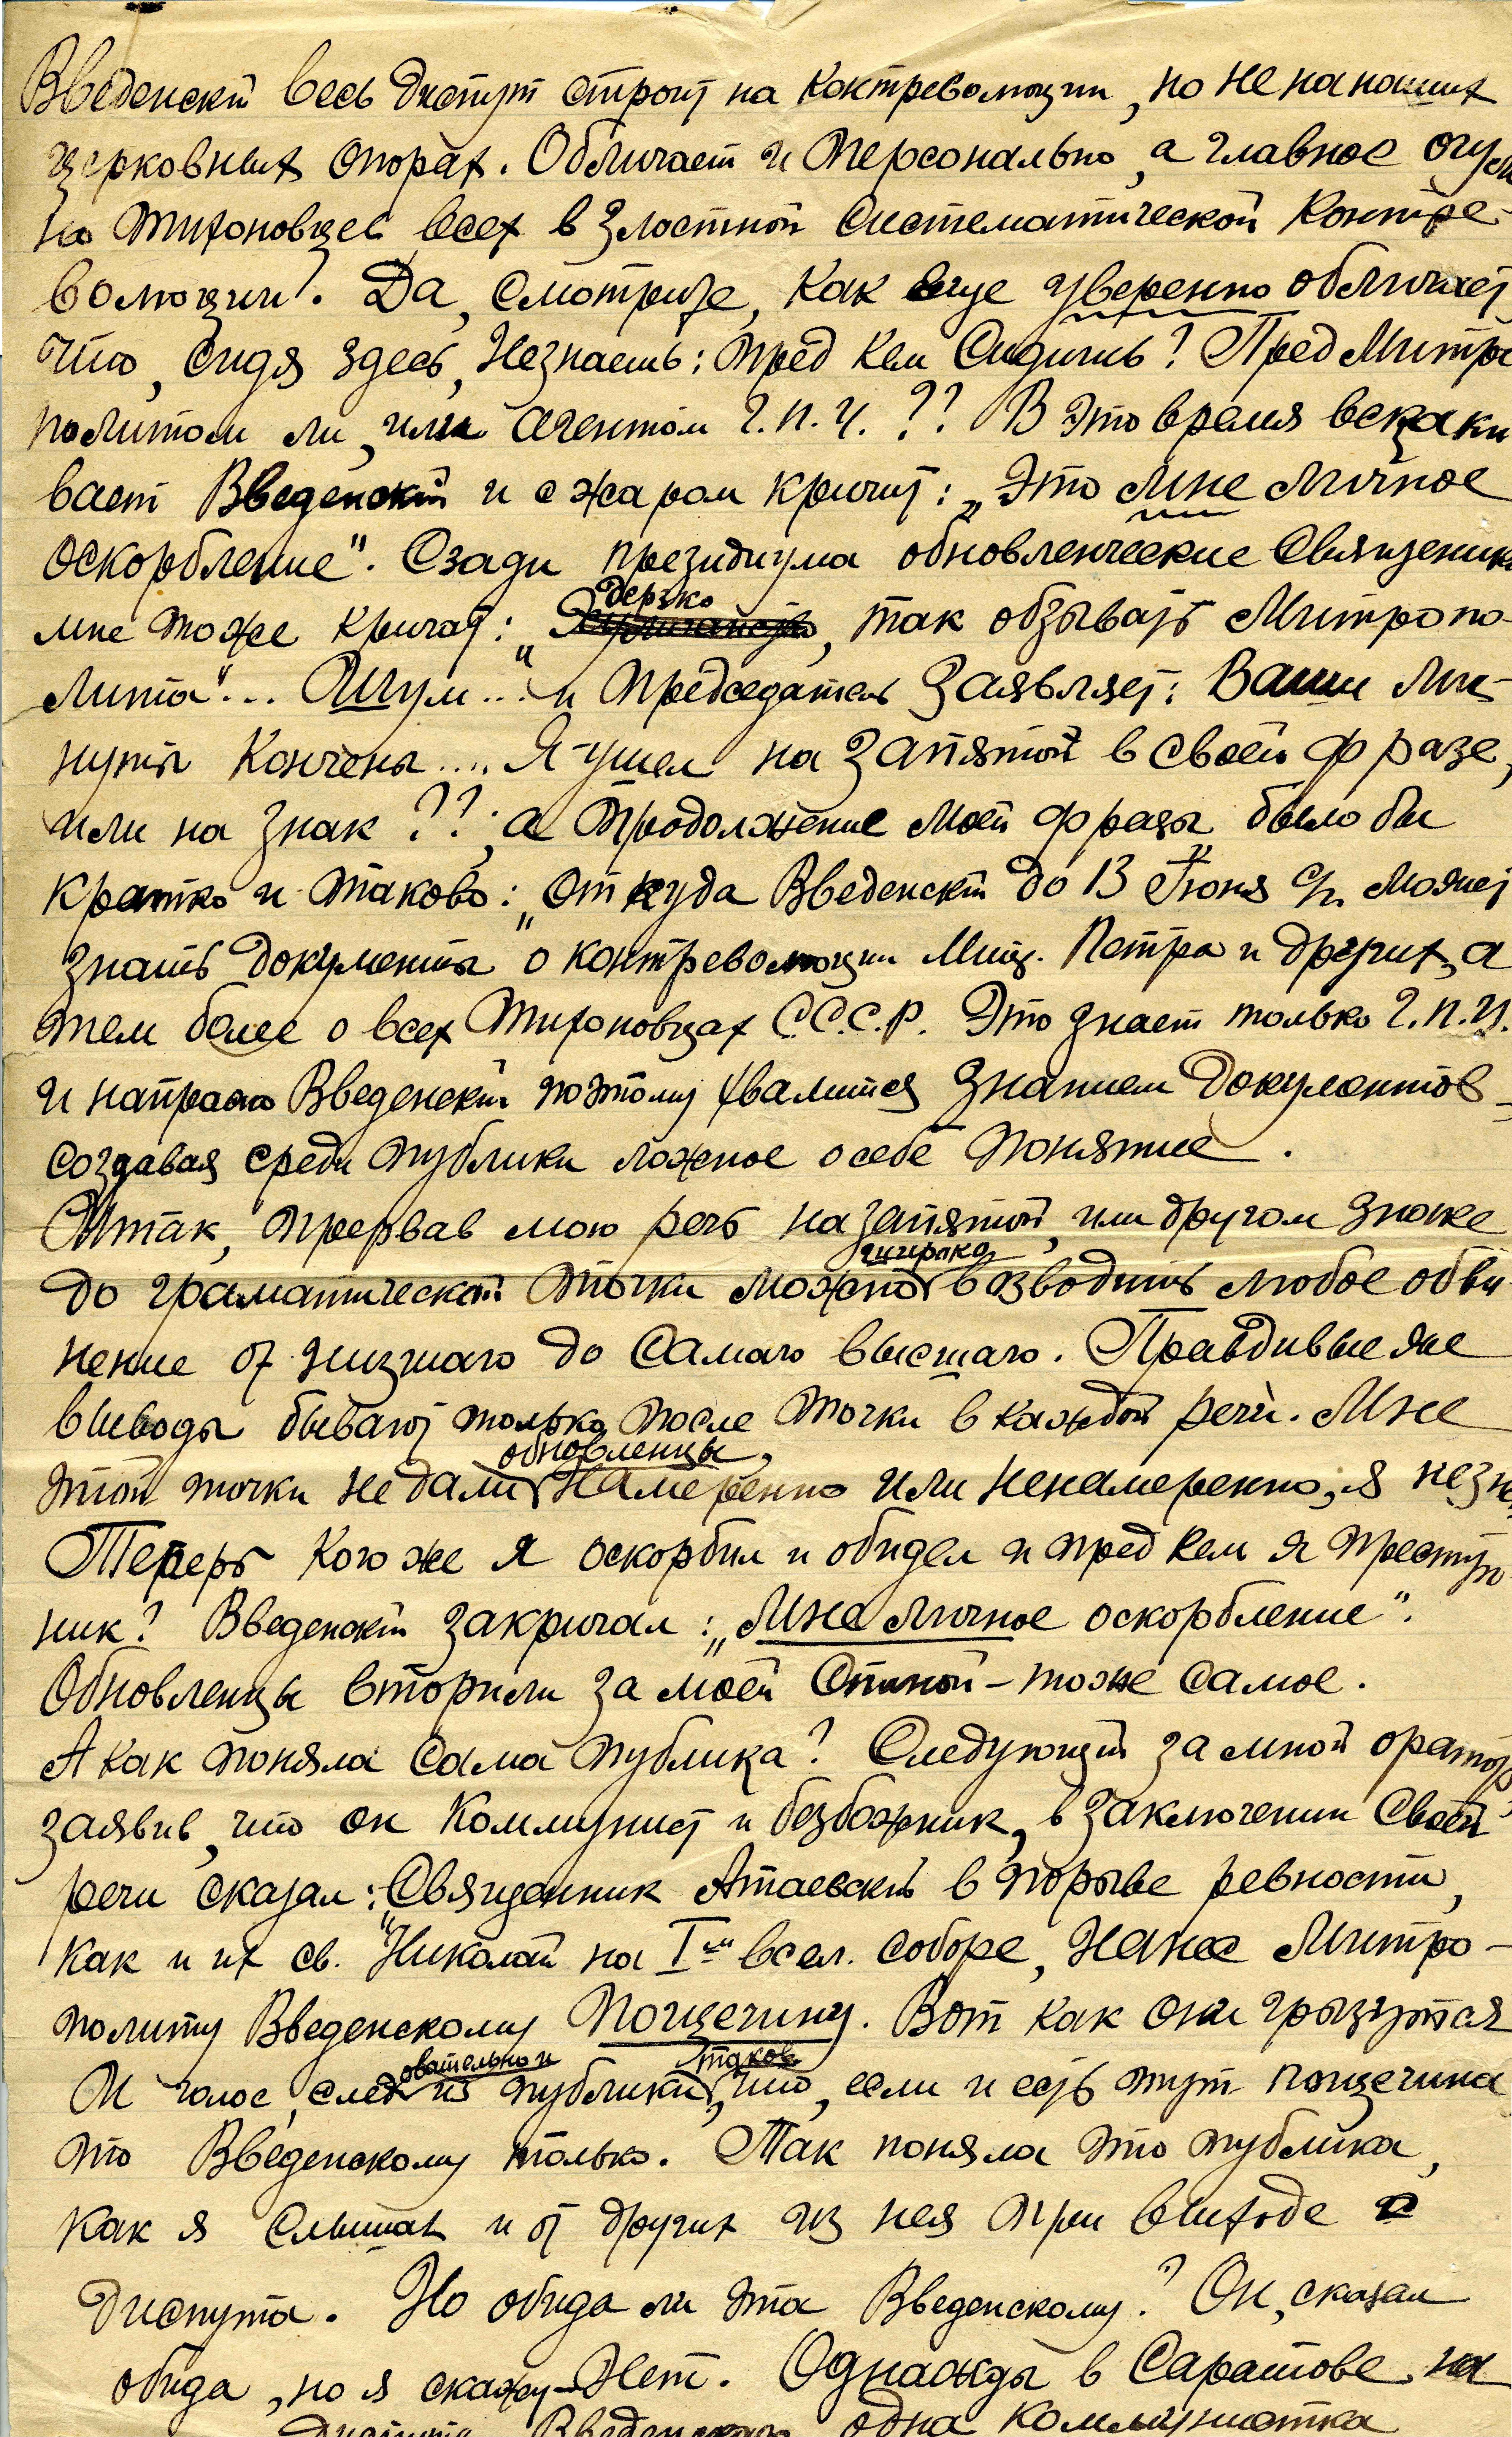 Введенскій весь диспут строит на контрреволюции, но не на наших
церковных опорах. Обличает и персонально, а главное огуль
но тихоновцев всех в злостной систематической контре-
волюции. Да, смотрите, как еще уверенно обличает,
что, сидя здесь, незнаешь: пред кем сидишь? Пред Митро
политом ли, или агентом Г.П.У. ?? В это время вскаки
вает Введенскій и с жаром кричит: „Это мне личное
оскорбление". Сзади президиума обновленческие священики
мне тоже кричат: „дерзко, так обзывать Митропо-
лита"... Шум... и председатель заявляет: Ваши ми-
нуты кончены.... Я ушел на запятой в своей фразе,
или на знак ??; а продолжение моей фразы было бы
кратко и таково: „откуда Введенскій до 13 Іюня с/г. может
знать документы о контреволюции Мит. Петра и других, а
тем более о всех Тихоновцах С.С.С.Р. Это знает только Г.П.У.
и напрасно Введенскій поэтому хвалится знанием документов,
создавая среди публики ложное о себе понятие.
Итак, прервав мою речь на запятой, или другом знаке
до граматической точки можно широко возводить любое обви
нение от низшаго до самаго высшаго. Правдивые же
выводы бывают только после точки в каждой речи. Мне
этой точки не дали обновленцы, намеренно или ненамеренно, я незн
Теперь кого же я оскорбил и обидел и пред кем я преступ
ник? Введенскій закричал: „Мне личное оскорбление".
Обновленцы вторили за моей спиной – тоже самое.
А как поняла сама публика? Следующій за мной оратор
заявив, что он коммунист и безбожник, в заключении своей
речи сказал: „Священник Атаевскій в порыве ревности,
как и их св. Николай на I-м всел. соборе, нанес Митро-
политу Введенскому пощечину. Вот как они грызутся
И голос, следовательно и из публики таков, что, если и есть тут пощечина
это Введенскому только. Так поняла это публика,
как я слышал и от других из нея при выходе с
диспута. Но обида ли эта Введенскому? Он, сказал
обида, но я скажу – Нет. Однажды в Саратове на
диспуте Введенскаго одна коммунистка